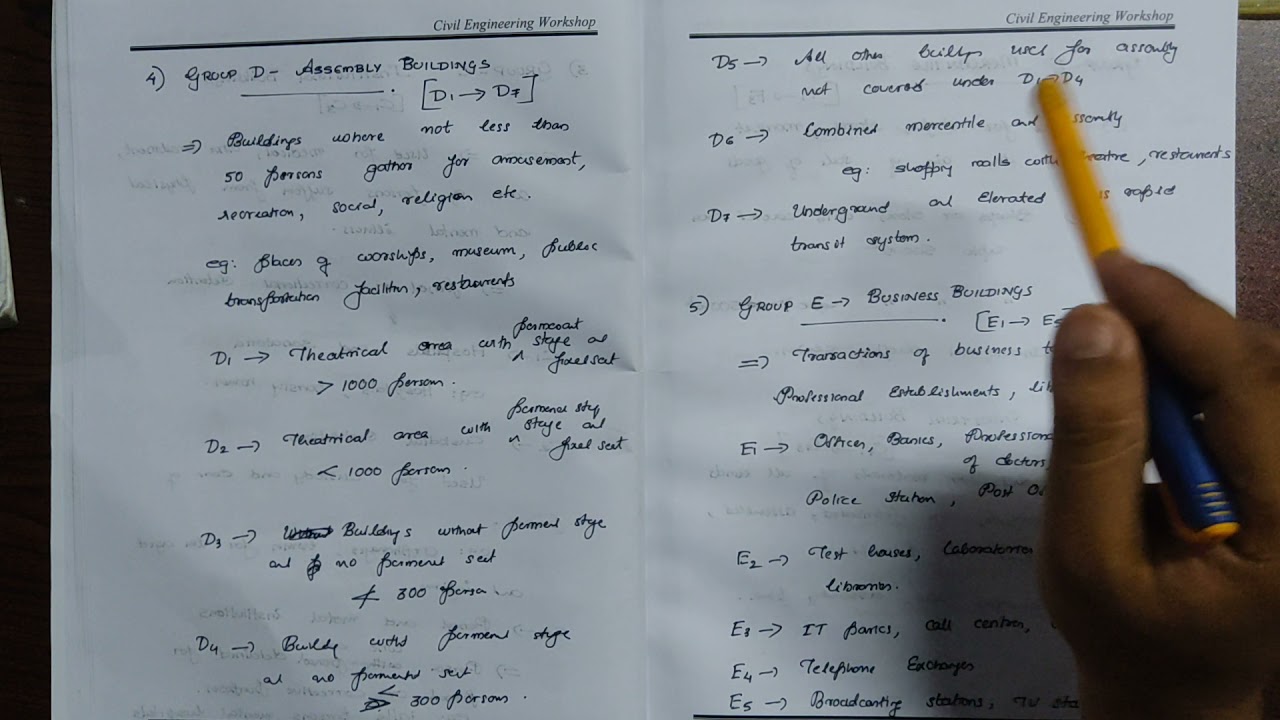 Civil Engineering Workshop
4) GROUP D - ASSEMBLY BUILDINGS
[D1 → D7]
⇒ Buildings where not less than
50 persons gather for amusement,
recreation, social, religion etc.
eg: places of worships, museum, public
transportation facilities, restaurents
D1 → Theatrical area with permenant stage and fixed seat
> 1000 persons.
D2 → Theatrical area with permenent stage and fixed seat
< 1000 persons.
D3 → Buildings without perment stge
and no perment seat
≮ 300 person.
D4 → Buildg witht perment stge
and no permentd seat
< 300 persons.
Civil Engineering Workshop
D5 → All other buildgs used for assembly
not covered under D1 → D4
D6 → Combined mercentile and assembly
eg: shoppng malls, restaurents
D7 → Underground and Elevated rapid
transit system.
5) GROUP E → BUSINESS BUILDINGS
[E1 → E5
⇒ Transactions of business
Professional Establishments,
E1 → Offices, Banks, Professional
of doctors,
Police station, Post
E2 → Test houses, Laboratories
libraries.
E3 → IT parks, call centres,
E4 → Telephone Exchanges
E5 → Broadcasting stations, TV